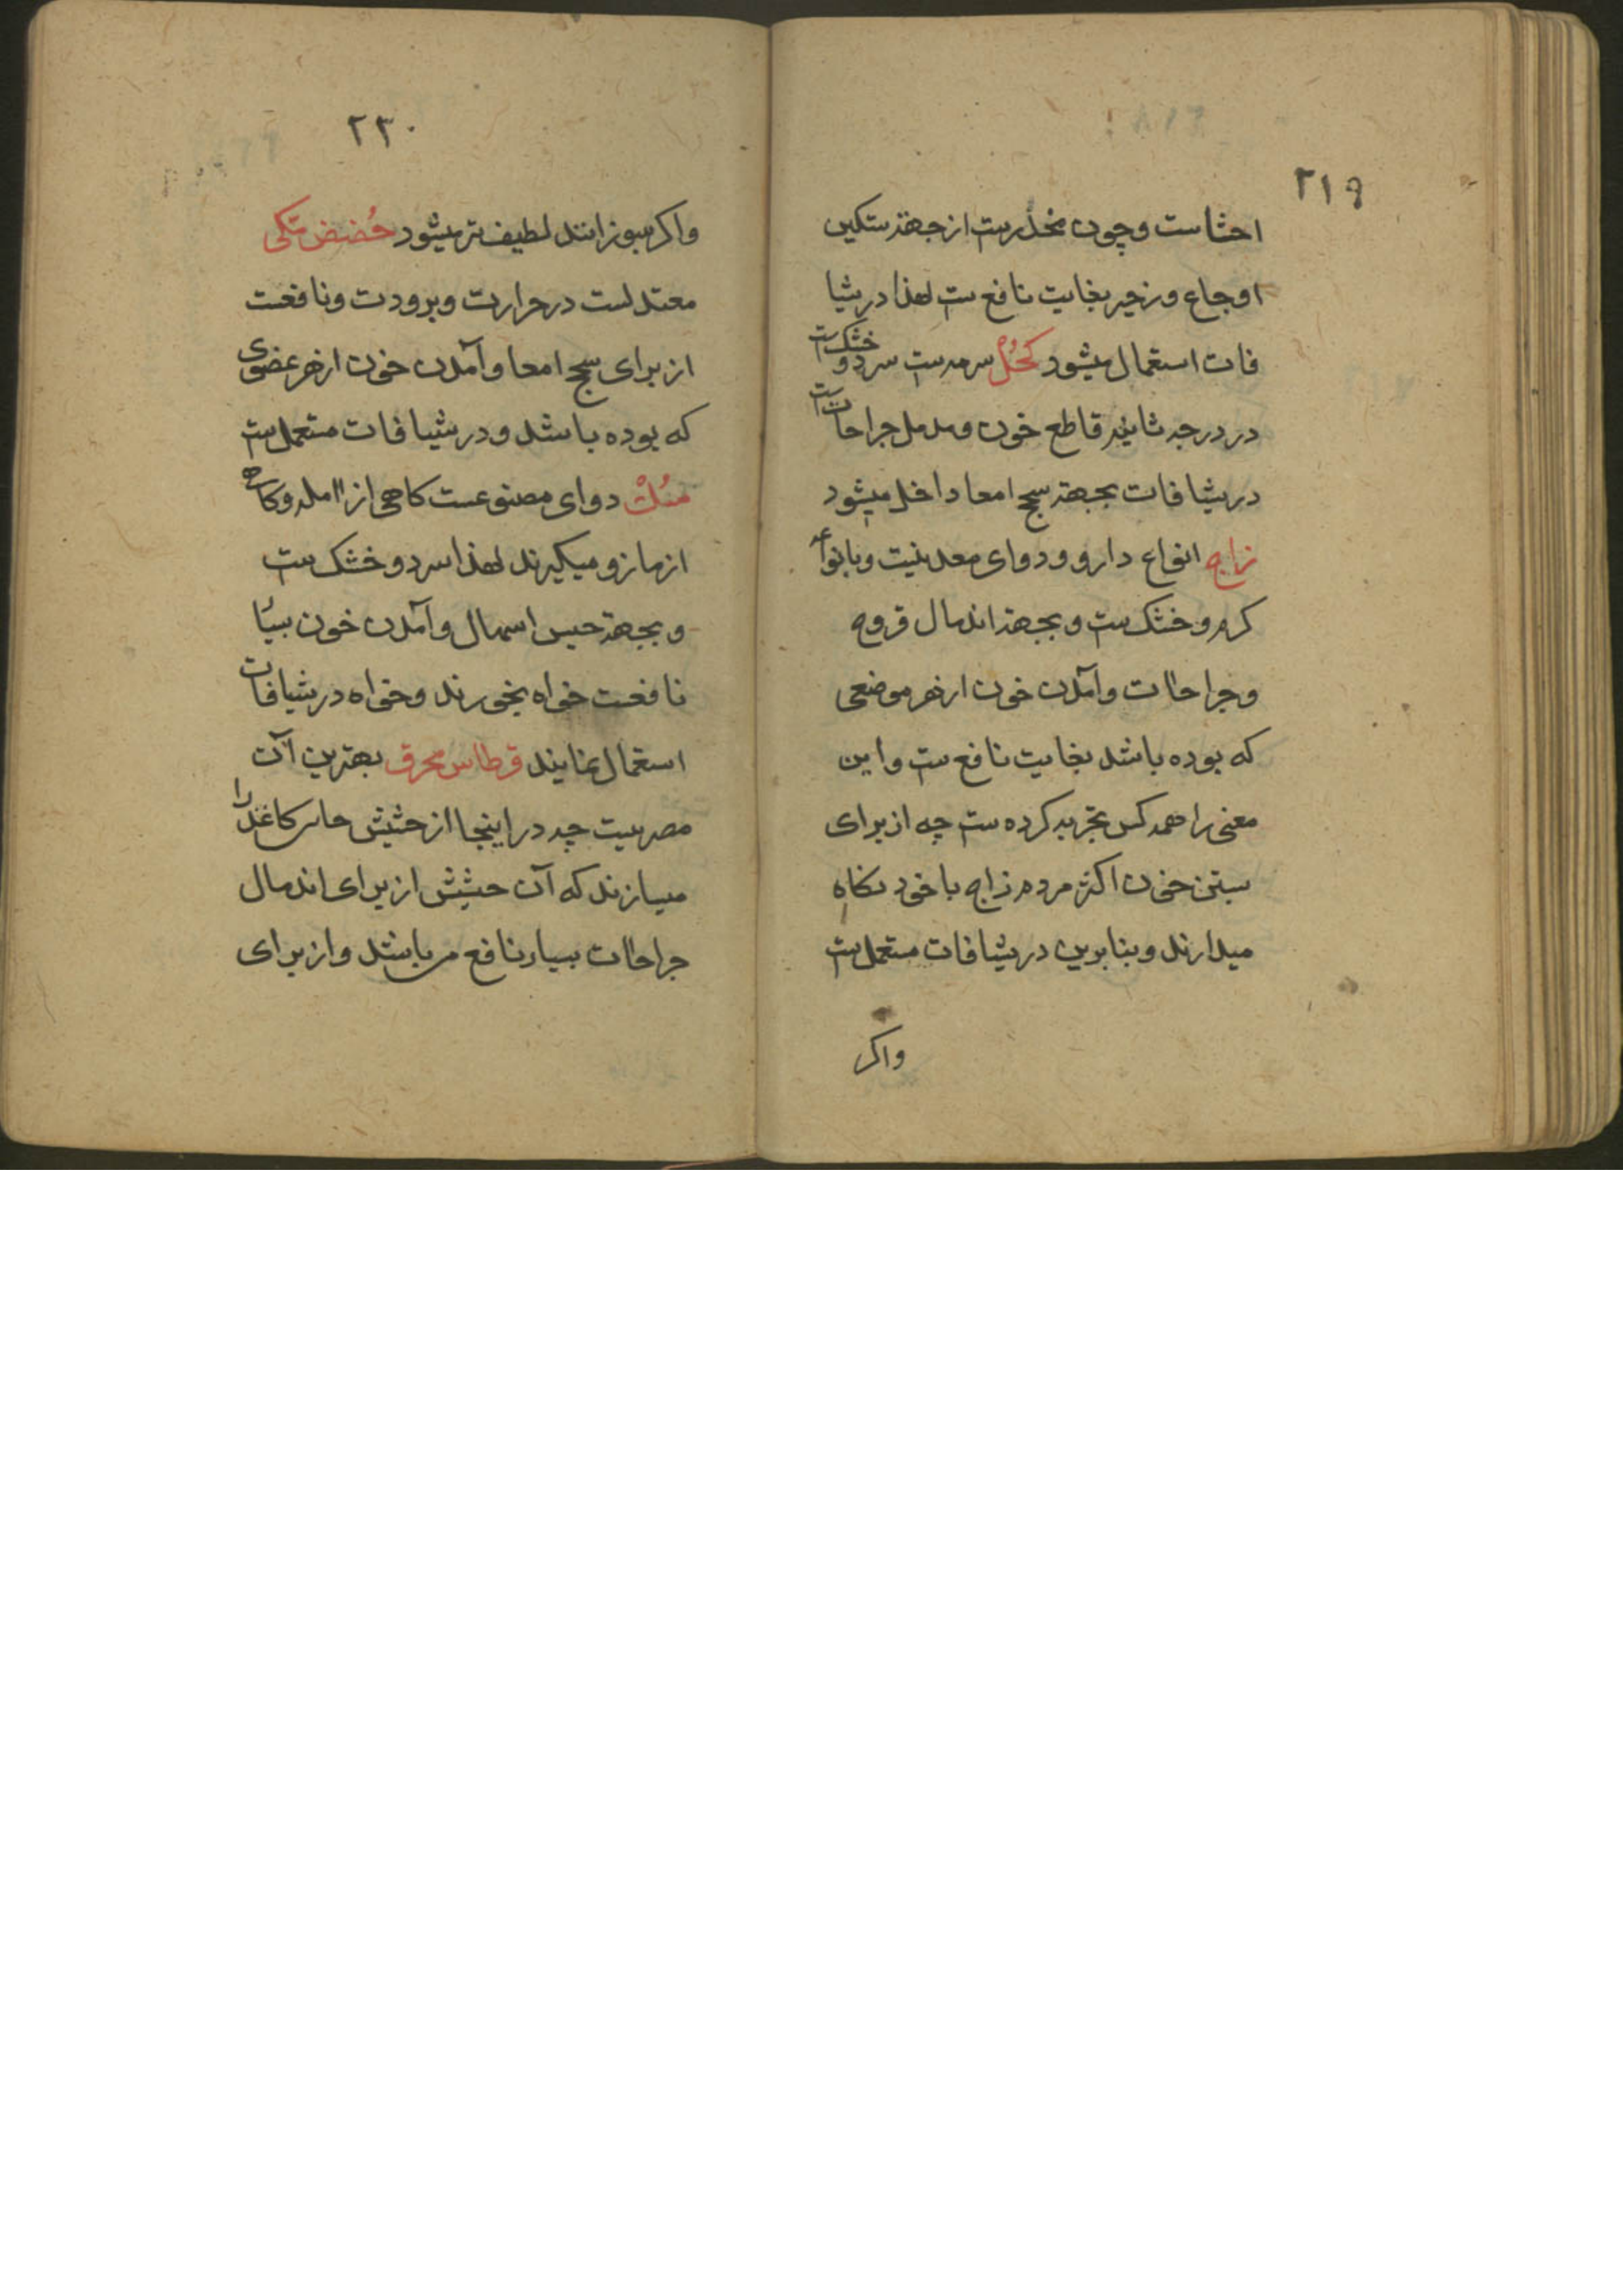 ۲۱۹
احشاست وچون مخدرست از جهة تسکین
اوجاع وزحیر بغایت نافع ست لهذا در شیا
فات استعمال میشود کُحُلْ سرمه ست سرد و خشک ست
در درجه ثانیه قاطع خون ومدمل جراحات ست
در شیافات بجهة سحج امعا داخل میشود
زاج انواع دارو ودوای معدنیت وبانواع
کرم وخشک ست وبجهة اندمال قروح
وجراحات وآمدن خون از هر موضعی
که بوده باشد بغایت نافع ست واین
معنی را همه کس تجربه کرده ست چه از برای
بستن خون اکثر مردم زاج با خود نکاه
میدارند وبنابرین در شیافات مستعمل ست
واکر
۲۲۰
واکر بسوزانند لطیف تر میشود حُضض مکی
معتدلست در حرارت وبرودت ونافعست
از برای سحج امعا وآمدن خون از هر عضوی
که بوده باشد ودر شیافات مستعمل ست
دوای مصنوعست کاهی از املہ وکاه
از مازو میکیرند لهذا سرد وخشک ست
وبجهة حبس اسهال وآمدن خون
نافعست خواه بخورند وخواه در شیافات
استعمال نمایند قرطاس محرق بهترین آن
مصریست چه در اینجا از حشیش کاغذ را
میسازند که آن حشیش از برای اندمال
جراحات بسیار نافع می باشد واز برای